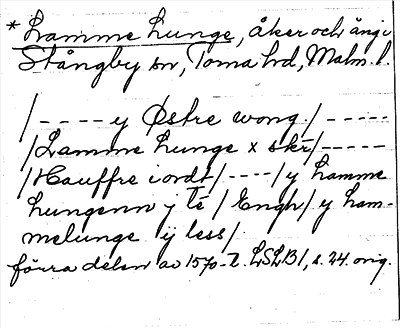 * Hamme Lunge, åker och äng i
Stångby sn, Torna hd, Malm. l.
/---- y Østre wong./-----
/Lamme Lunge x skr/-----
/Hauffre i ordt/----/y hamme
Lungenn y Té/Engh/y ham-
melunge ÿ less/
förra delen av 1570-t. LSLB1, s. 24. orig.